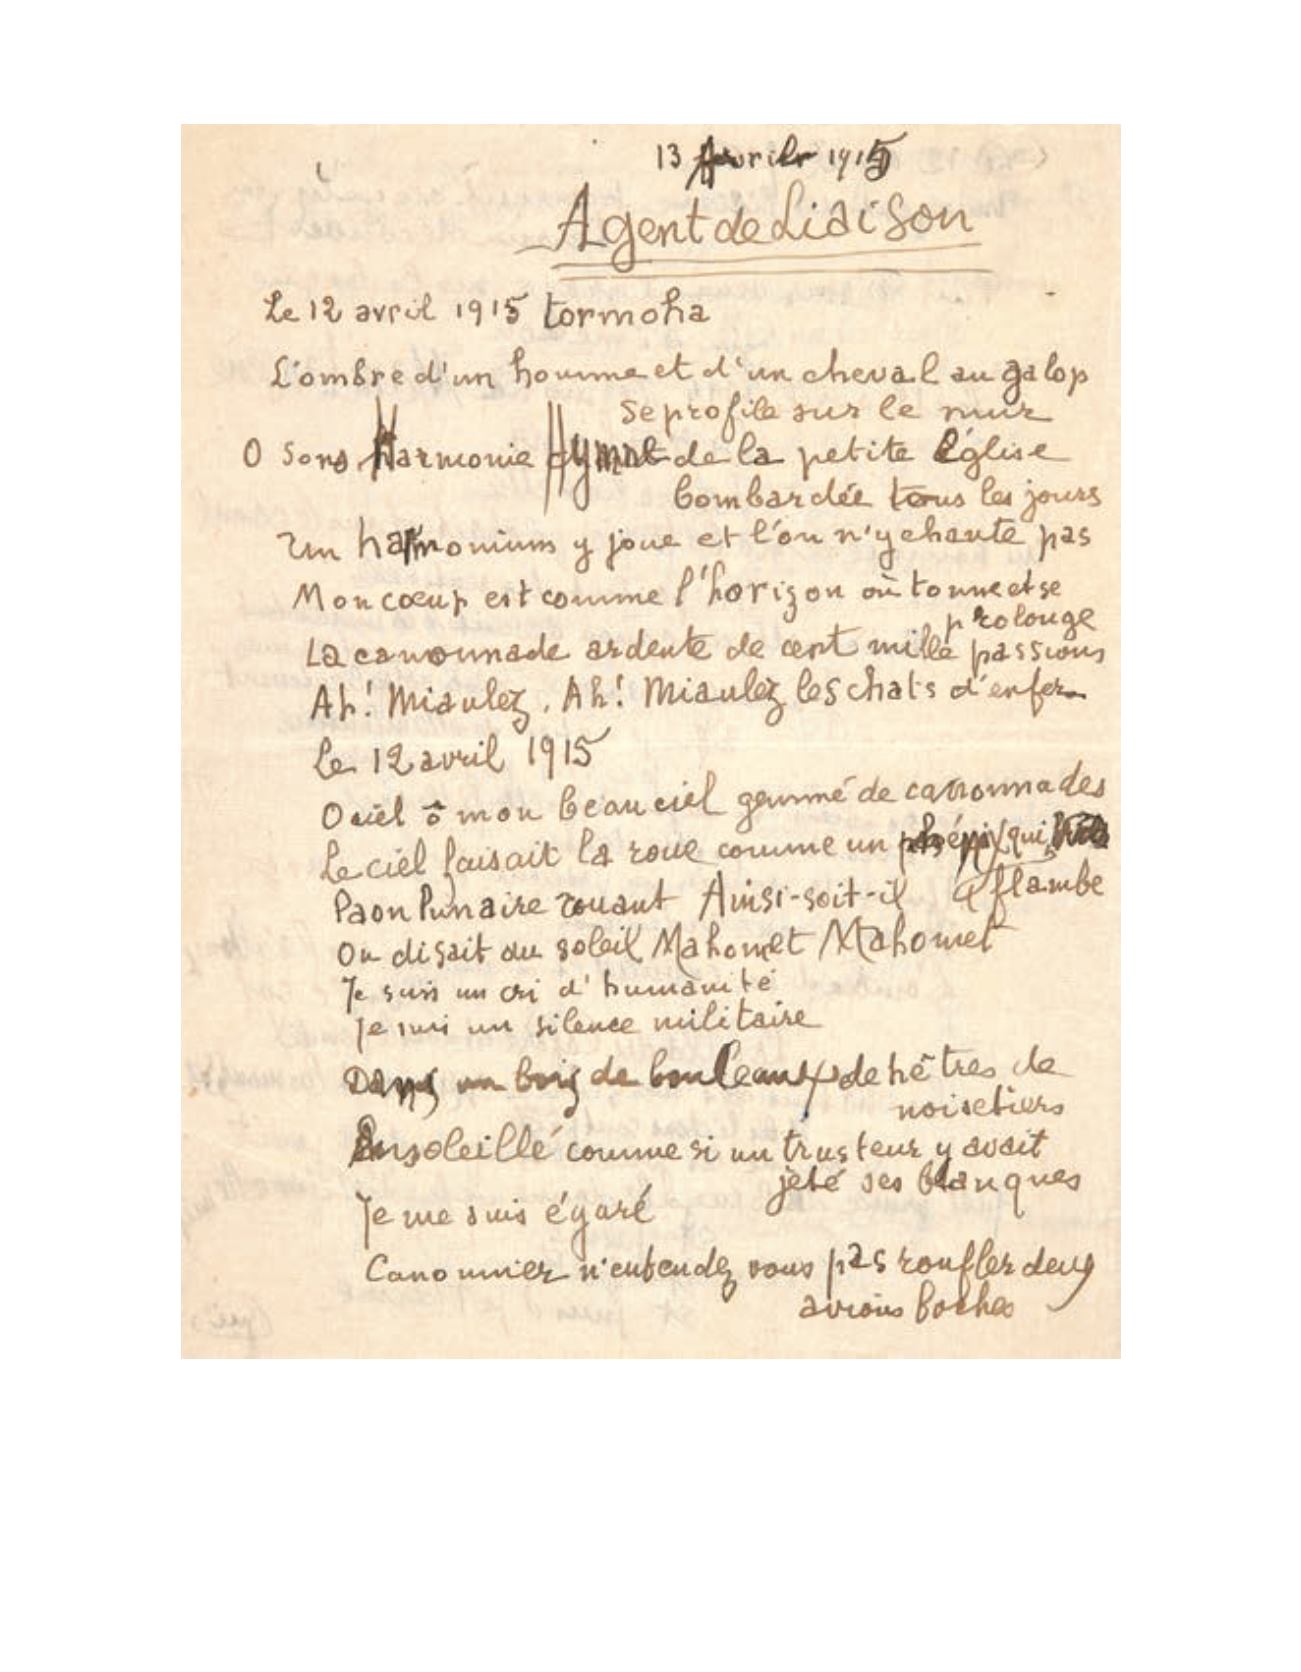 13 Avril 1915
Agent de Liaison
Le 12 avril 1915 tormoha
L'ombre d'un homme et d'un cheval au galop
se profile sur le mur
O sons Harmonie Hymne de la petite église
bombardée tous les jours
Un harmonium y joue et l'on n'y chante pas
Mon cœur est comme l'horizon où tonne et se
prolonge
La canonnade ardente de cent mille passions
Ah! Miaulez, Ah! Miaulez les chats d'enfer
Le 12 avril 1915
O ciel ô mon beau ciel gemmé de canonnades
Le ciel faisait la roue comme un phénix qui
flambe
Paon lunaire rouant Ainsi-soit-il
On disait du soleil Mahomet Mahomet
Je suis un cri d'humanité
Je suis un silence militaire
Dans un bois de bouleaux de hêtres de
noisetiers
Ensoleillé comme si un trusteur y avait
jeté ses blanques
Je me suis égaré
Canonnier n'entendez vous pas ronfler deux
avions boches